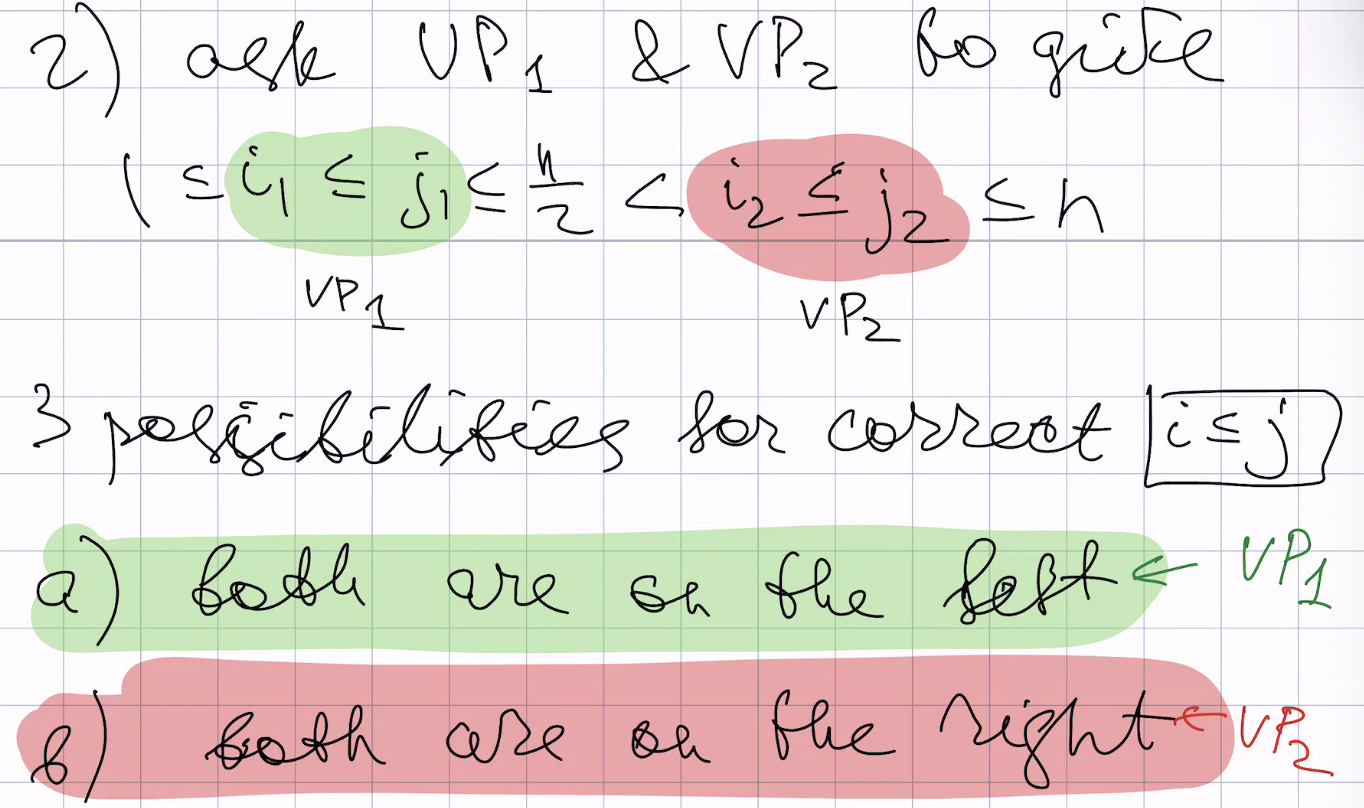 2) ask VP₁ & VP₂ to give
1 ≤ i₁ ≤ j₁ ≤ n/2 < i₂ ≤ j₂ ≤ n
VP₁ VP₂
3 possibilities for correct i ≤ j
a) both are on the left ← VP₁
b) both are on the right ← VP₂